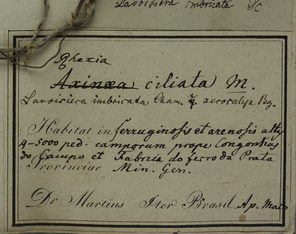 Lavoisiera imbricata SC
Rhexia
Axinæa ciliata M.
Lavoisiera imbricata Cham. xerocalyx
Habitat in ferruginosis et arenosis alt.
4-5000 ped. camporum prope Congonhas
do Campo et Fabrica do ferro da Prata
Provinciae Min. Gen.
Dr Martius Iter Brasil. Ap. Mai